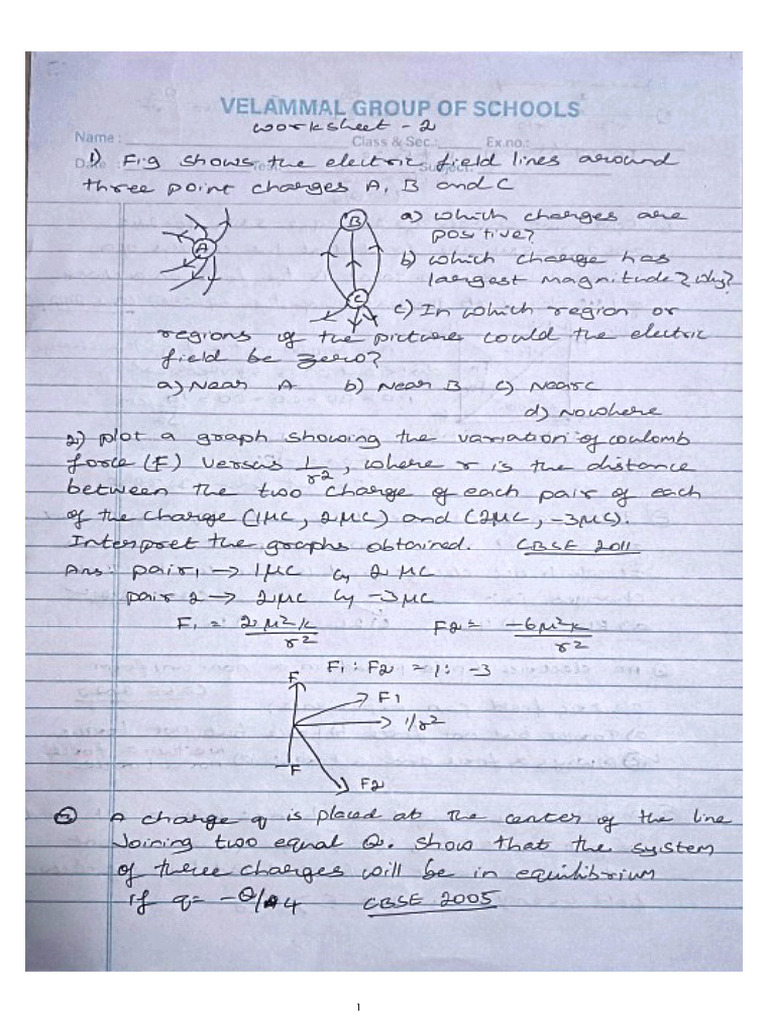 VELAMMAL GROUP OF SCHOOLS
worksheet - 2
Name : Class & Sec.: Ex.no.:
Date : Test: Subject:
1) Fig shows the electric field lines around
three point charges A, B and C
a) which charges are
positive?
b) which charge has
largest magnitude? Why?
A
B
C
c) In which region or
regions of the picture could the electric
field be zero?
a) Near A b) Near B c) Near C
d) Nowhere
2) plot a graph showing the variation of coulomb
force (F) versus 1/r2, where r is the distance
between the two charge of each pair of each
of the charge (1μC, 2μC) and (2μC, -3μC).
Interpret the graphs obtained. CBSE 2011
Ans: pair1 → 1μC 2μC
pair 2 → 2μC -3μC
F1 = 2μ2k/r2 F2 = -6μ2k/r2
F1 : F2 = 1 : -3
F
F1
1/r2
-F
F2
3 A charge q is placed at the center of the line
Joining two equal Q. show that the system
of three charges will be in equilibrium
if q = -Q/4 CBSE 2005
1